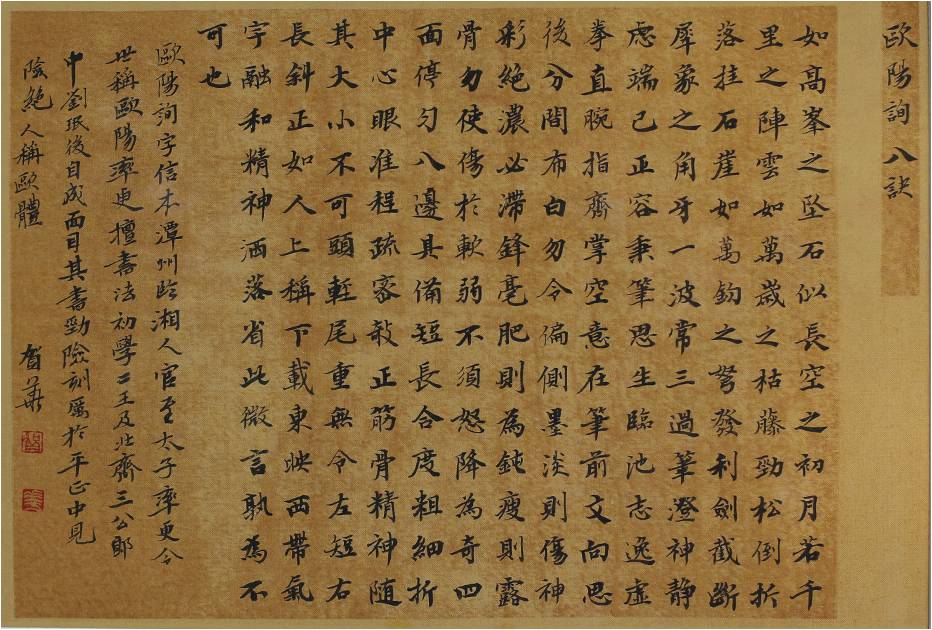 歐陽詢八訣
如高峯之墜石似長空之初月若千
里之陣雲如萬歲之枯藤勁松倒折
落挂石崖如萬鈞之弩發利劍截斷
犀象之角牙一波常三過筆澄神靜
慮端己正容秉筆思生臨池志逸虛
拳直腕指齊掌空意在筆前文向思
後分間布白勿令偏側墨淡則傷神
彩絕濃必滯鋒毫肥則為鈍瘦則露
骨勿使傷於軟弱不須怒降為奇四
面停勻八邊具備短長合度粗細折
中心眼准程疏密敧正筋骨精神隨
其大小不可頭輕尾重無令左短右
長斜正如人上稱下載東映西帶氣
宇融和精神洒落省此微言孰為不
可也
歐陽詢字信本潭州臨湘人官至太子率更令
世稱歐陽率更擅書法初學二王及北齊三公郎
中劉珉後自成面目其書勁險刻厲於平正中見
險絕人稱歐體
賀華